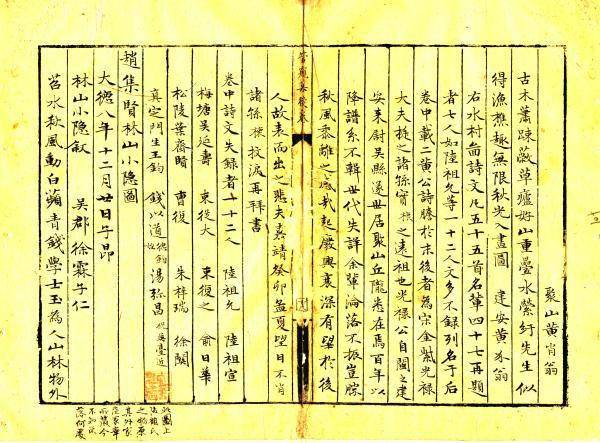 聚山黄肖翁
古木蕭踈蔽草廬好山重疊水縈紆先生似
得漁樵趣無限秋光入畫圖　建安黄　翁
右水村啚詩文凡五十五首名軰四十七再題
者七人如陸祖允等一十二人文多不録列名于后
卷中載二黄公詩勝於末後者為宋金紫光禄
大夫　之諸孫實　之遠祖也光禄公自閩之建
安來尉吳縣遂世居聚山丘隴悉在焉百年以
降譜系不輯世代失詳余軰淪落不振豈勝
秋風黍離之感哉起廢興衰深有望於後
人故表而出之　夫嘉靖癸卯孟夏望日不肖
諸孫　抆淚再拜書
卷中詩文失録者一十二人　陸祖允　陸祖宣
梅塘吴延壽　東從大　束從之　俞日華
松陵葉齋賢　曹復　朱梓瑞　徐關
真定門生王鈞　錢以道　湯弥昌
趙集賢林山小隐圖
大德八年十二月廿日子昂
林山小隐叙　吴郡徐霖子仁
苕水秋風動白蘋青錢學士玉為人山林物外